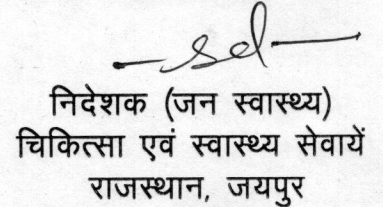 -sd-
निदेशक (जन स्वास्थ्य)
चिकित्सा एवं स्वास्थ्य सेवायें
राजस्थान, जयपुर